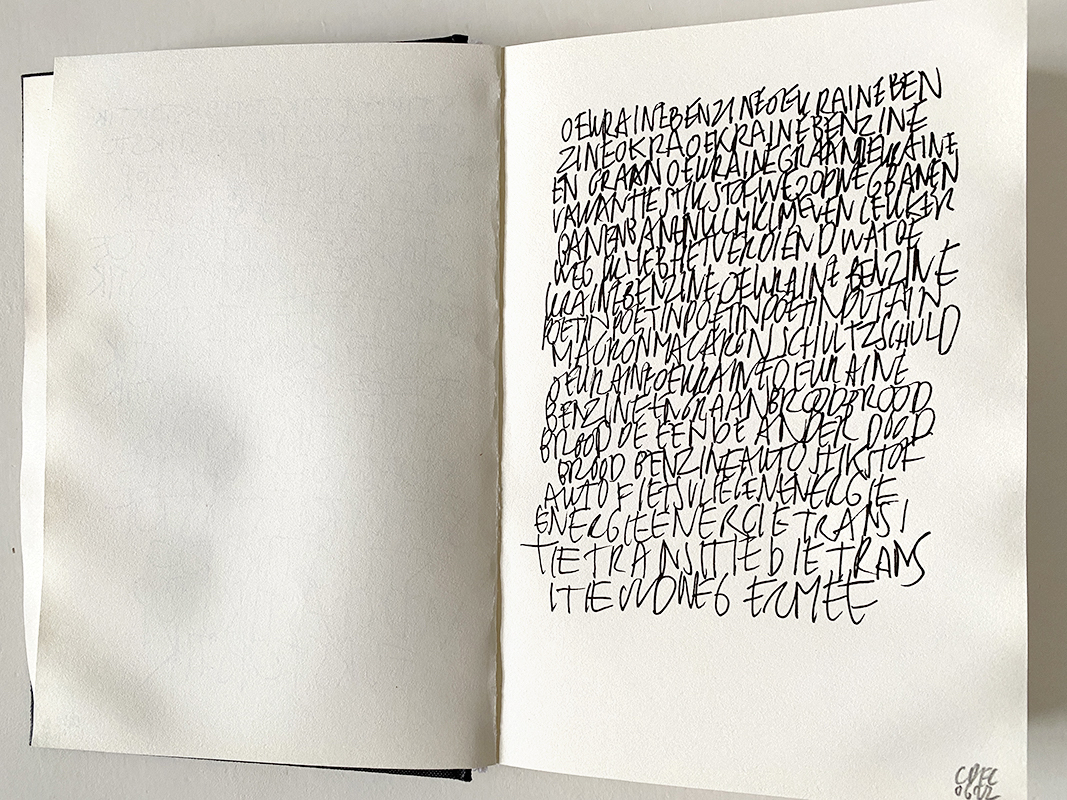 OEKRAINEBENZINEOEKRAINEBEN
ZINEOKRAOEKRAINEBENZINE
EN GRAAN OEKRAINEGRAANOEKRAINE
VAKANTIESTIKSTOFWEOPWEGBANEN
BANENBANEN EVEN LEUKER
WEG HETVERDIEND WAT OE
KRAINEBENZINE OEKRAINE BENZINE
POETINPOETINPOETINPOETINPUTAIN
MACRONMACARONSCHULTZSCHULD
OEKRAINEOEKRAINEOEKRAINE
BENZINEENGRAANBROODBROOD
BROOD DE EEN DE ANDER DOOD
BROOD BENZINEAUTOSTIKSTOF
AUTOFIETSVLIEGENENERGIE
ENERGIEENERGIETRANSI
TIETRANSITIEDIETRANS
ITIE WEG ERMEE